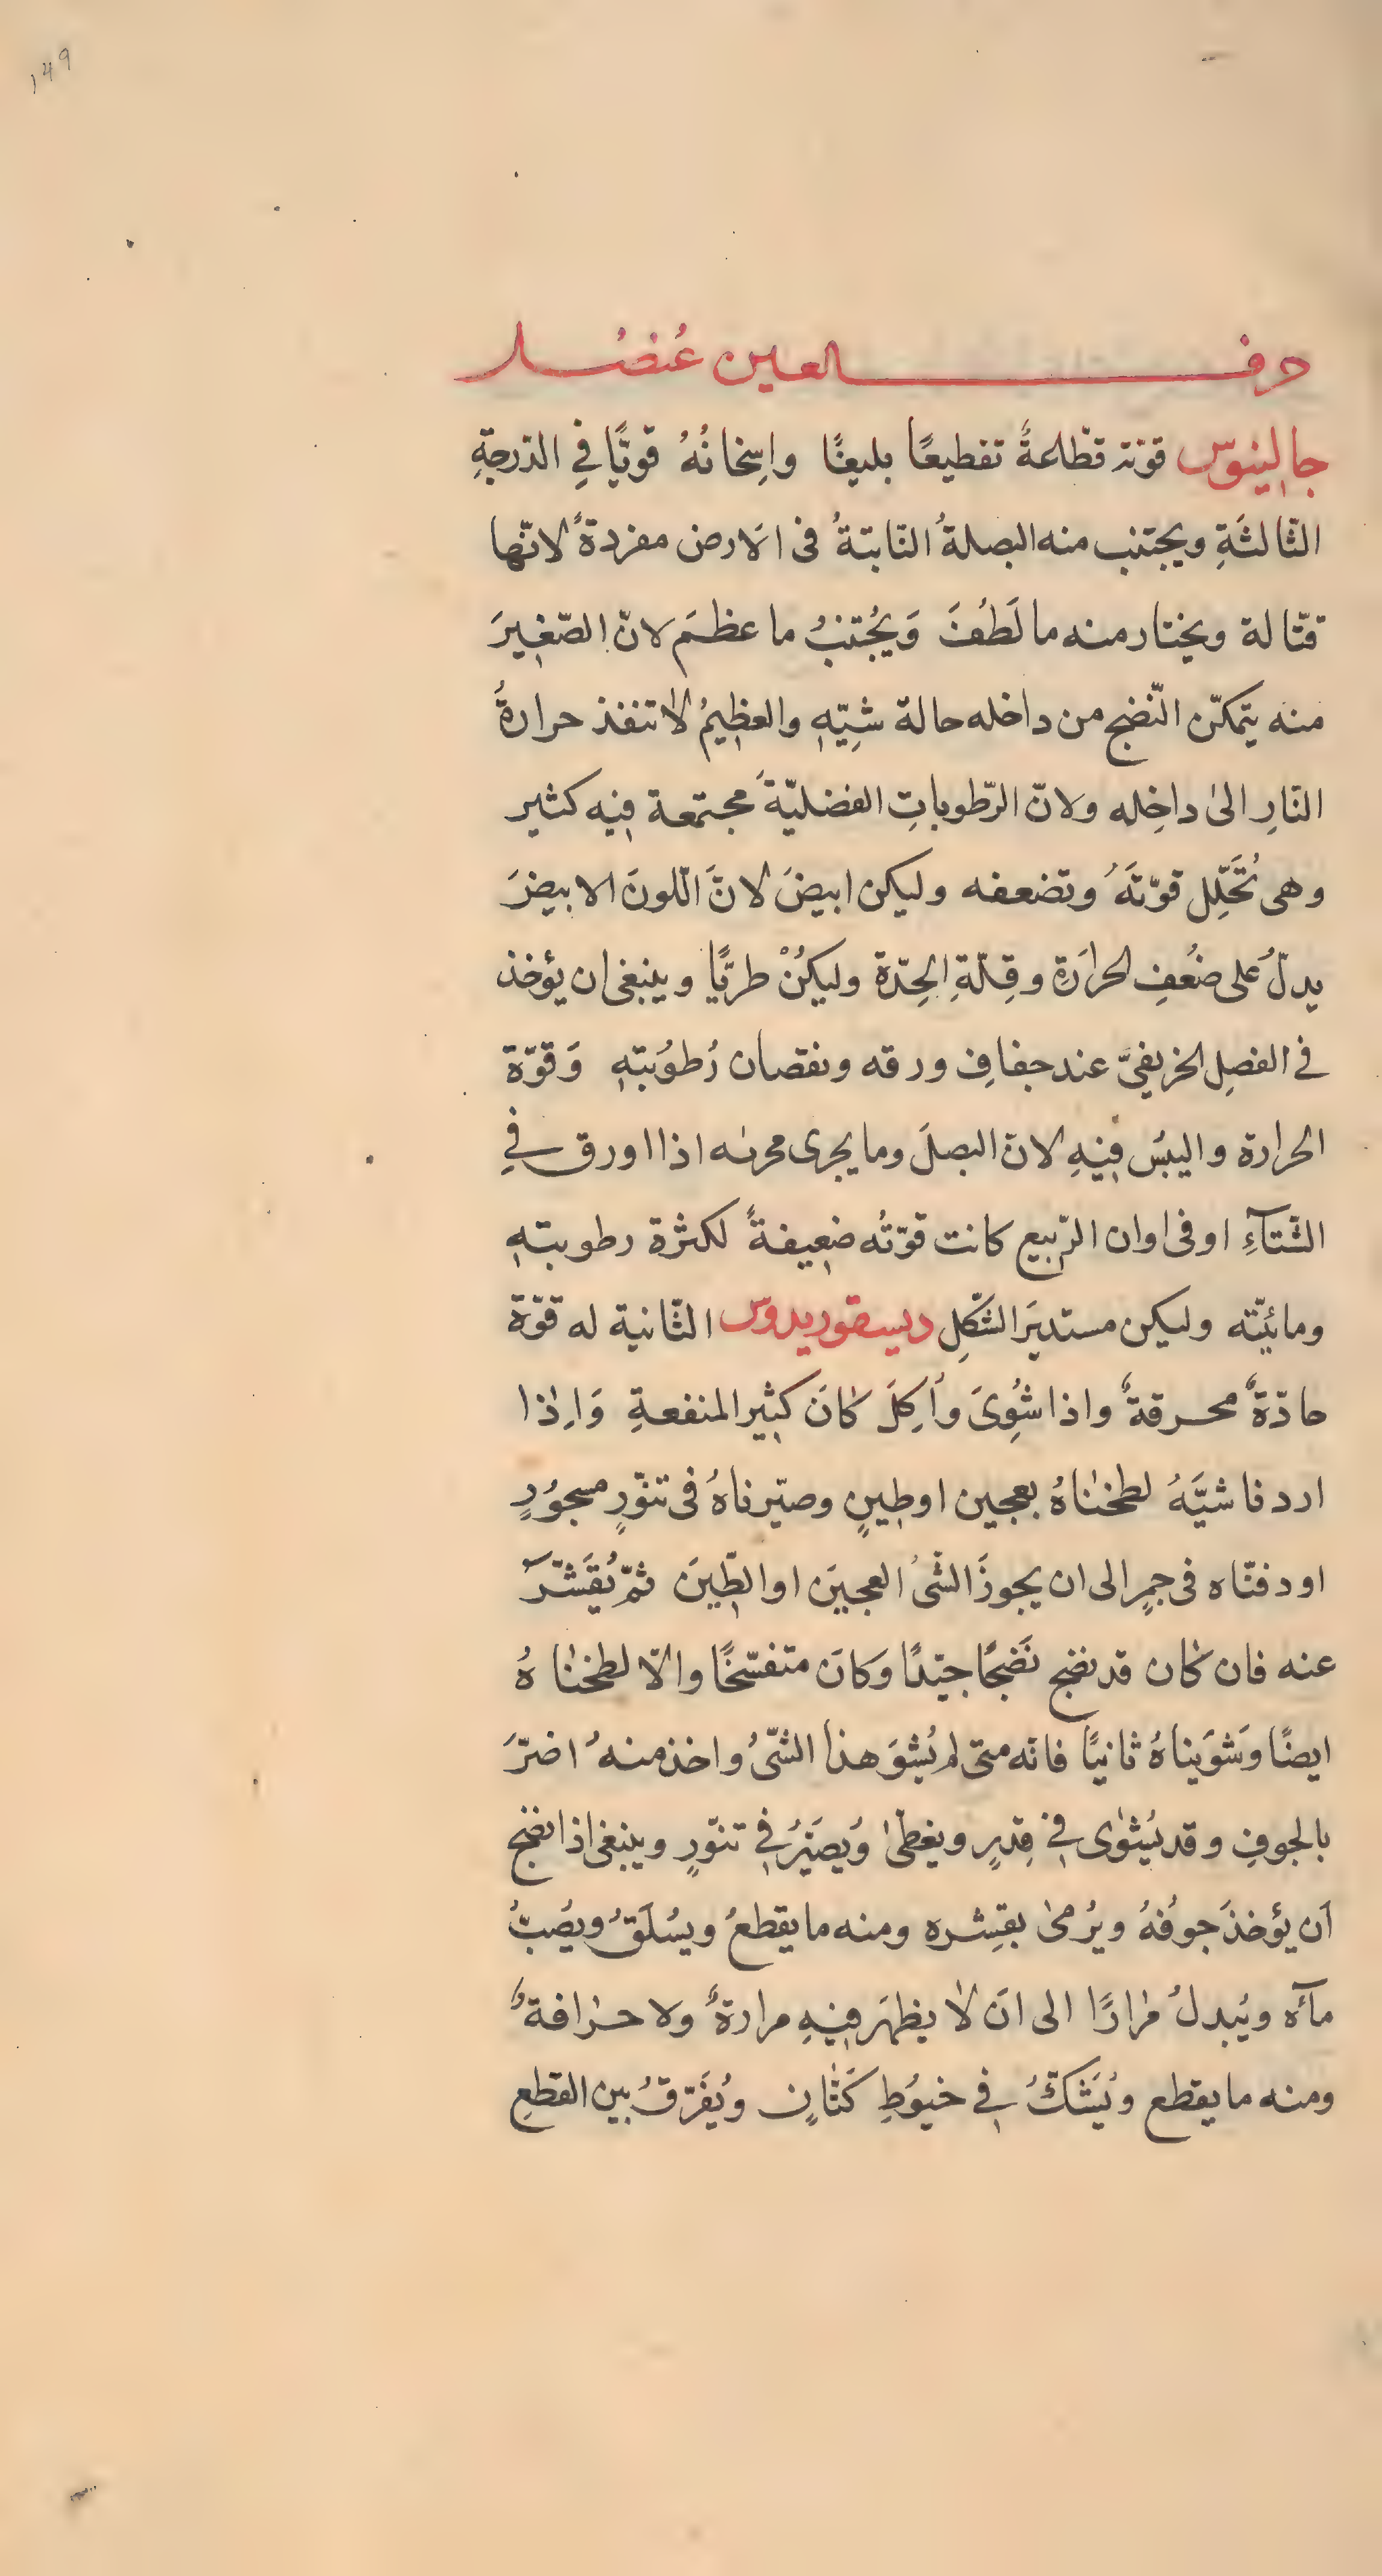 ١٤٩
حرف العين عُنصُل
جالينوس قوّته قطّاعةً تقطيعًا بليغًا واِسخانُهُ قويًّا فِي الدّرجةِ
الثّالثَةِ ويجتنب منه البصلةُ النّابتةُ فى الَارض مفردةً لانّها
قتّالة ويختار منه ما لَطُفَ وَيُجْتنبُ ما عظمَ لانّ الصّغيرَ
منه يتمكّن النّضج من داخله حالة شِيّهِ والعظِيمُ لا تنفذ حرارةُ
النّارِ الىٰ داخِله ولانّ الرّطوباتِ الفضليّةَ مجتمعة فيه كثير
وهى تُحَلِّل قوّتَهُ وتضعفه وليكن ابيضَ لانَّ اللّونَ الابيضَ
يدلّ على ضُعفِ الحرارَةِ وقِلّةِ الحِدّة وليكُنْ طريًّا وينبغى ان يؤخذ
فے الفصلِ الخريفىّ عند جفافِ ورقه ونقصان رُطوُبتهِ وَقوّة
الحرارة واليبسُ فيهِ لانّ البصلَ وما يجرى مجرىه اذا اورق فِي
الشّتآءِ او فى اوان الرّبيع كانت قوّتُه ضعِيفةً لكثرة رطوبتهِ
ومائيّته وليكن مستديرَ الشّكلِ ديسقوريدوس الثّانية له قوّة
حادّةٌ محرقةٌ واذا شُوِىَ واُكِلَ كانَ كثيرَ المنفعةِ وَاِذا
اردنا شيَّهُ لطخناهُ بعجين او طِينٍ وصيّرناهُ فى تنّورٍ مسجوُرٍ
او دفنّاه فى جمرٍ الى ان يجوزَ الشّىُ العجينَ او الطِّينَ ثمّ يُقَشّرُ
عنه فان كان قد نضج نَضجًا جيّدًا وكانَ متفسّخًا والّا لطخناهُ
ايضًا وَشَوَيناهُ ثانيًا فانّه متى لم يُشوَ هذا الشّىُ واخذ منهُ اضرّ
بالجوفِ وقد يُشوٰى فِي قِدرٍ ويغطىٰ وَيصَيّرُ فِي تنّورٍ وينبغى اذا نضج
اَن يؤخذَ جوفُهُ ويُرمىٰ بقِشره ومنه ما يقطعُ ويُسْلَقُ ويُصَبُّ
مآئه ويُبدلُ مرٰارًا الى انَ لا يظهرَ فيهِ مرارةٌ ولا حرٰافةٌ
ومنه ما يقطع ويُشَكُّ فِي خيوُطِ كتّانٍ ويُفَرّقُ بين القطعِ